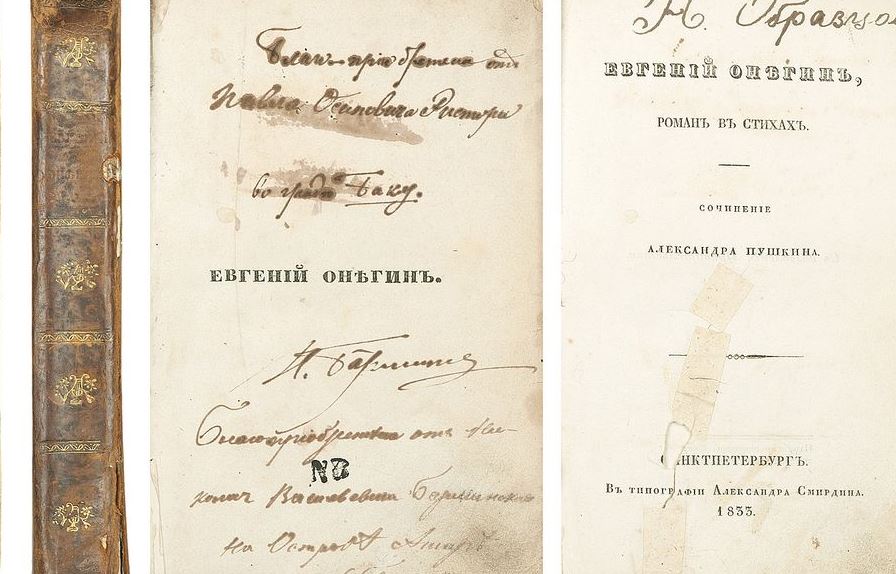 Благопріобретена отъ
Павла Осиповича Ристори
во граде Баку.
ЕВГЕНІЙ ОНѢГИНЪ.
Благопріобретена отъ Ни-
NB
колая Васильевича
на Островѣ
Н. Образцов
ЕВГЕНІЙ ОНѢГИНЪ,
РОМАНЪ ВЪ СТИХАХЪ.
СОЧИНЕНІЕ
АЛЕКСАНДРА ПУШКИНА.
САНКТПЕТЕРБУРГЪ.
Въ типографіи Александра Смирдина.
1833.